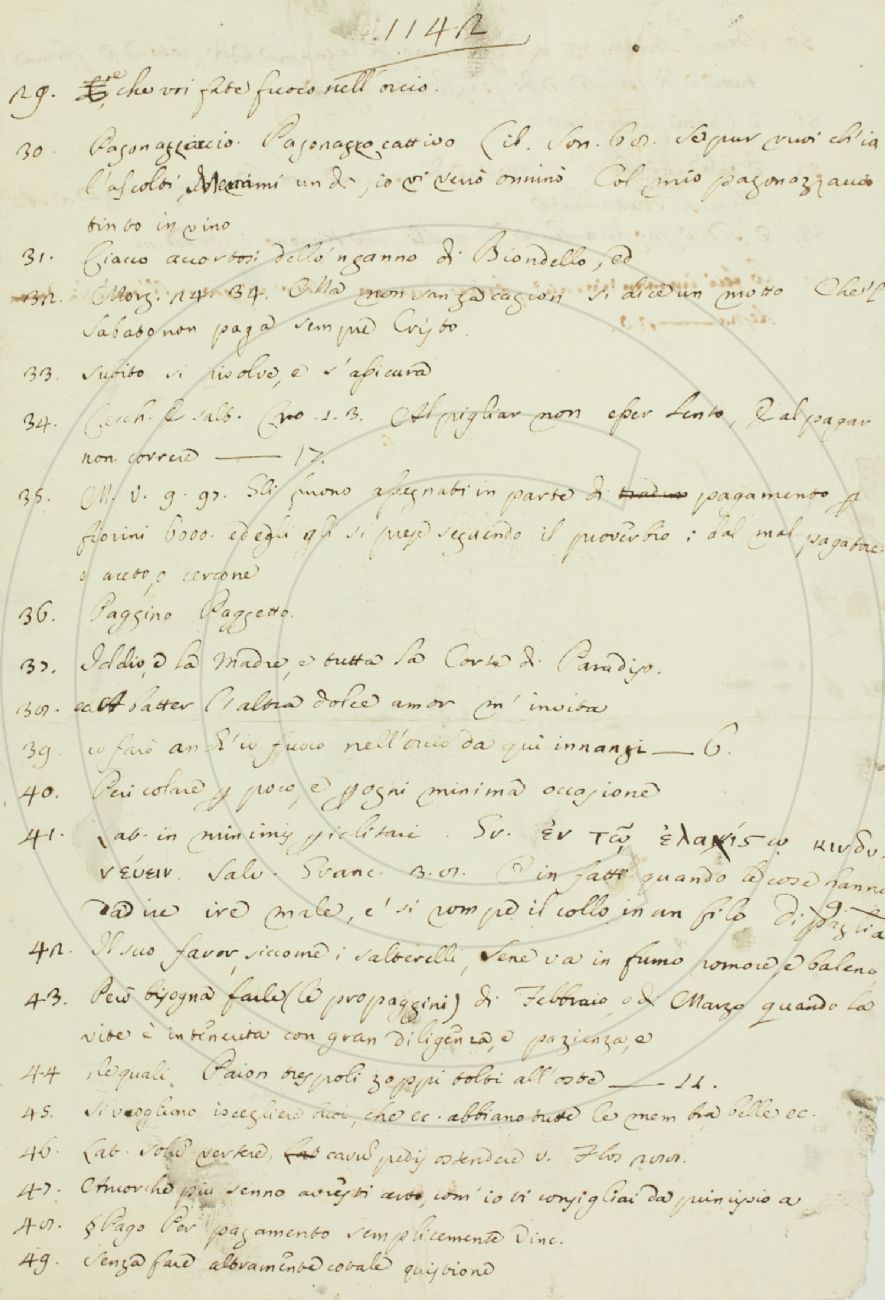 1142
29. che voi fate fuoco nell'orcio.
30. Pagonazzaccio. Pagonazzo cattivo Lib. Son. 68. Se pur vuoi ch'io
l'ascolti, un dì, io vi verrò onninò Col mio pagonazzaccio
tinto in vino
31. Ciacco accortosi dello 'nganno di Biondello, ed
32. Morg. 24. 34. Ma non sanza cagion si dice un motto Che 'l
sabato non paga sempre Cristo.
33. subito si risolve, e s'assicura
34. Cecch. Esalt. Cro. 1. 3. Al pigliar non esser lento, E al pagar
non correre —— 17.
35. M. V. 9. 97. Gli furono assegnati in parte di pagamento p
fiorini 6000. ed egli gli si prese seguendo il proverbio: dal mal pagatore
o aceto, o cercone
36. Paggino Paggetto.
37. Iddio, e la Madre, e tutta la Corte di Paradiso.
38. batter l'altra dolce amor m'invita
39. io farò anch'io fuoco nell'orcio da quì innanzi —— 6.
40. Pericolare p poco, e p ogni minima occasione
41. Lat. in minimis piclitari. Gr. ἐν τῷ ἐλαχίστῳ κινδυ-
νεύειν. Salv. Granc. 3. 8. E in fatti quando le cose hanno
da ire ire male, e' si rompe il collo in un filo di paglia
42. Il suo favor, siccome i salterelli, Sene va in fumo romore, e baleno
43. Però bisogna farle (le propaggini) di Febbraio, o di Marzo quando la
vite è intenerita con gran diligenza, e pazienza, e
44 le quali Paion trespoli zoppi tolti all'oste —— 11.
45. Si vogliono iscegliere buoi, che ec. abbiano tutte le membra belle ec.
46. Lat. solum vertere, cavum pedis ostendere v. Flos 288.
47. Ancorchè più senno avresti avuto, com' io ti consigliai da principio a
48. § Pago Per pagamento semplicemente Dinc.
49. senza fare altramente cotale quistione